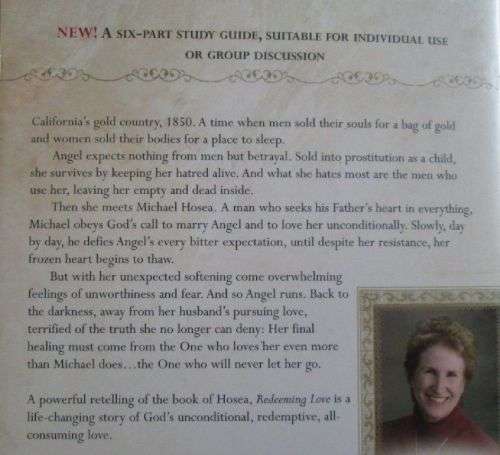 NEW! A SIX-PART STUDY GUIDE, SUITABLE FOR INDIVIDUAL USE
OR GROUP DISCUSSION
California's gold country, 1850. A time when men sold their souls for a bag of gold
and women sold their bodies for a place to sleep.
Angel expects nothing from men but betrayal. Sold into prostitution as a child,
she survives by keeping her hatred alive. And what she hates most are the men who
use her, leaving her empty and dead inside.
Then she meets Michael Hosea. A man who seeks his Father's heart in everything,
Michael obeys God's call to marry Angel and to love her unconditionally. Slowly, day
by day, he defies Angel's every bitter expectation, until despite her resistance, her
frozen heart begins to thaw.
But with her unexpected softening come overwhelming
feelings of unworthiness and fear. And so Angel runs. Back to
the darkness, away from her husband's pursuing love,
terrified of the truth she no longer can deny: Her final
healing must come from the One who loves her even more
than Michael does…the One who will never let her go.
A powerful retelling of the book of Hosea, Redeeming Love is a
life-changing story of God's unconditional, redemptive, all-
consuming love.